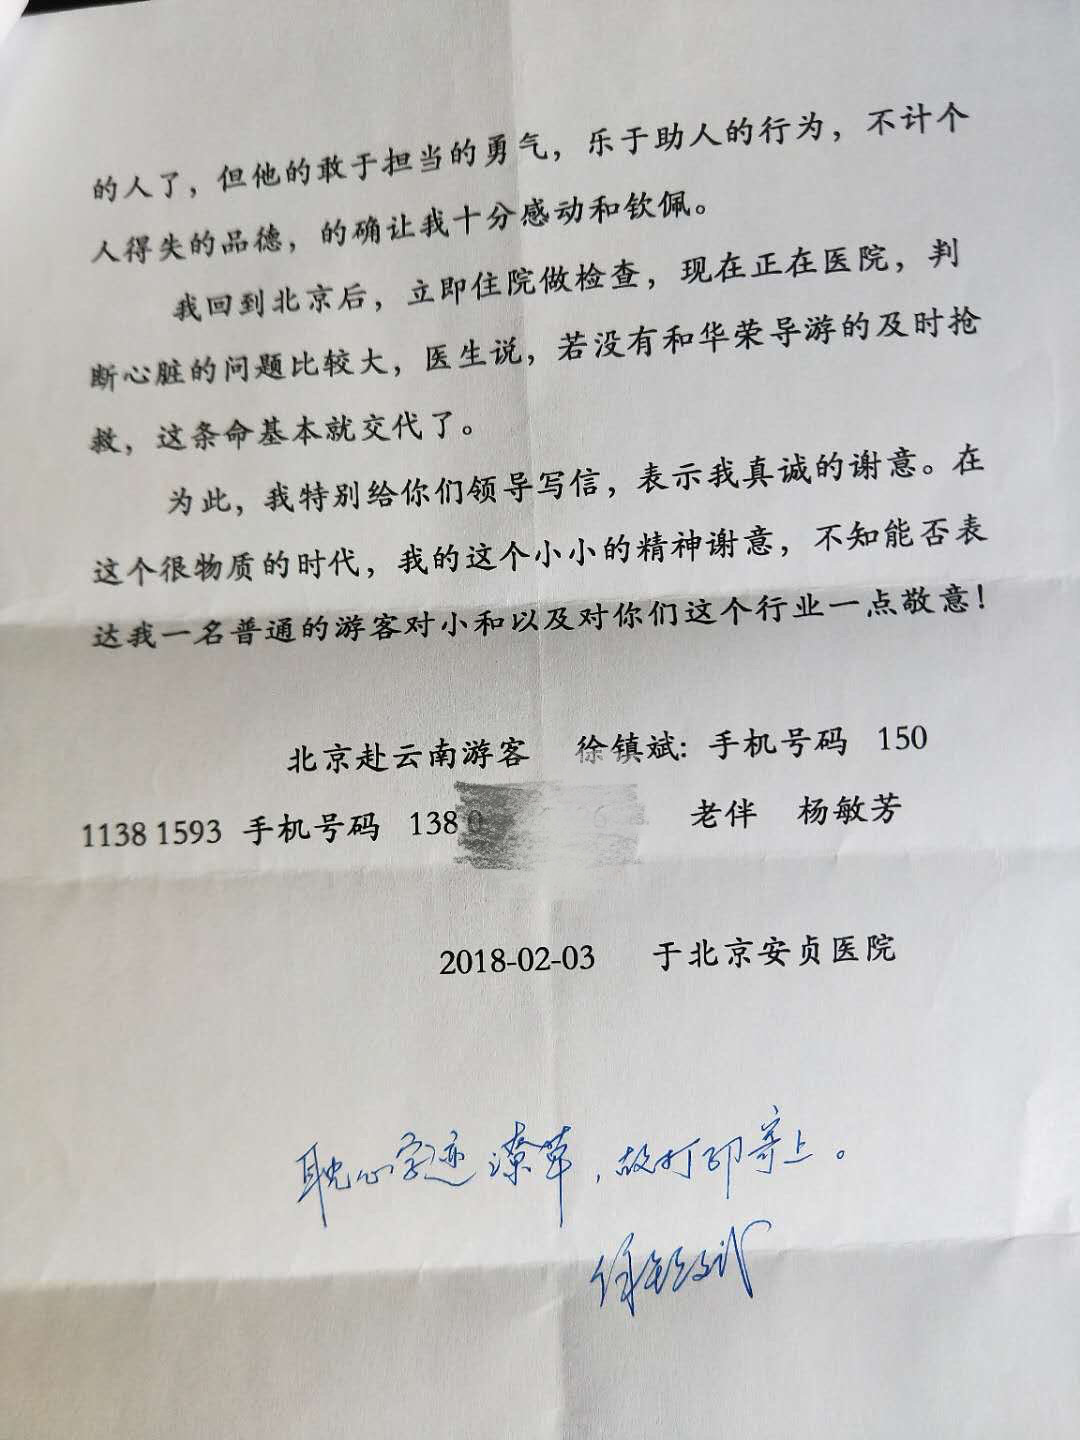 的人了，但他的敢于担当的勇气，乐于助人的行为，不计个
人得失的品德，的确让我十分感动和钦佩。
我回到北京后，立即住院做检查，现在正在医院，判
断心脏的问题比较大，医生说，若没有和华荣导游的及时抢
救，这条命基本就交代了。
为此，我特别给你们领导写信，表示我真诚的谢意。在
这个很物质的时代，我的这个小小的精神谢意，不知能否表
达我一名普通的游客对小和以及对你们这个行业一点敬意！
北京赴云南游客 徐镇斌: 手机号码 150
1138 1593 手机号码 138 老伴 杨敏芳
2018-02-03 于北京安贞医院
耽心字迹潦草，故打印寄上。
徐镇斌